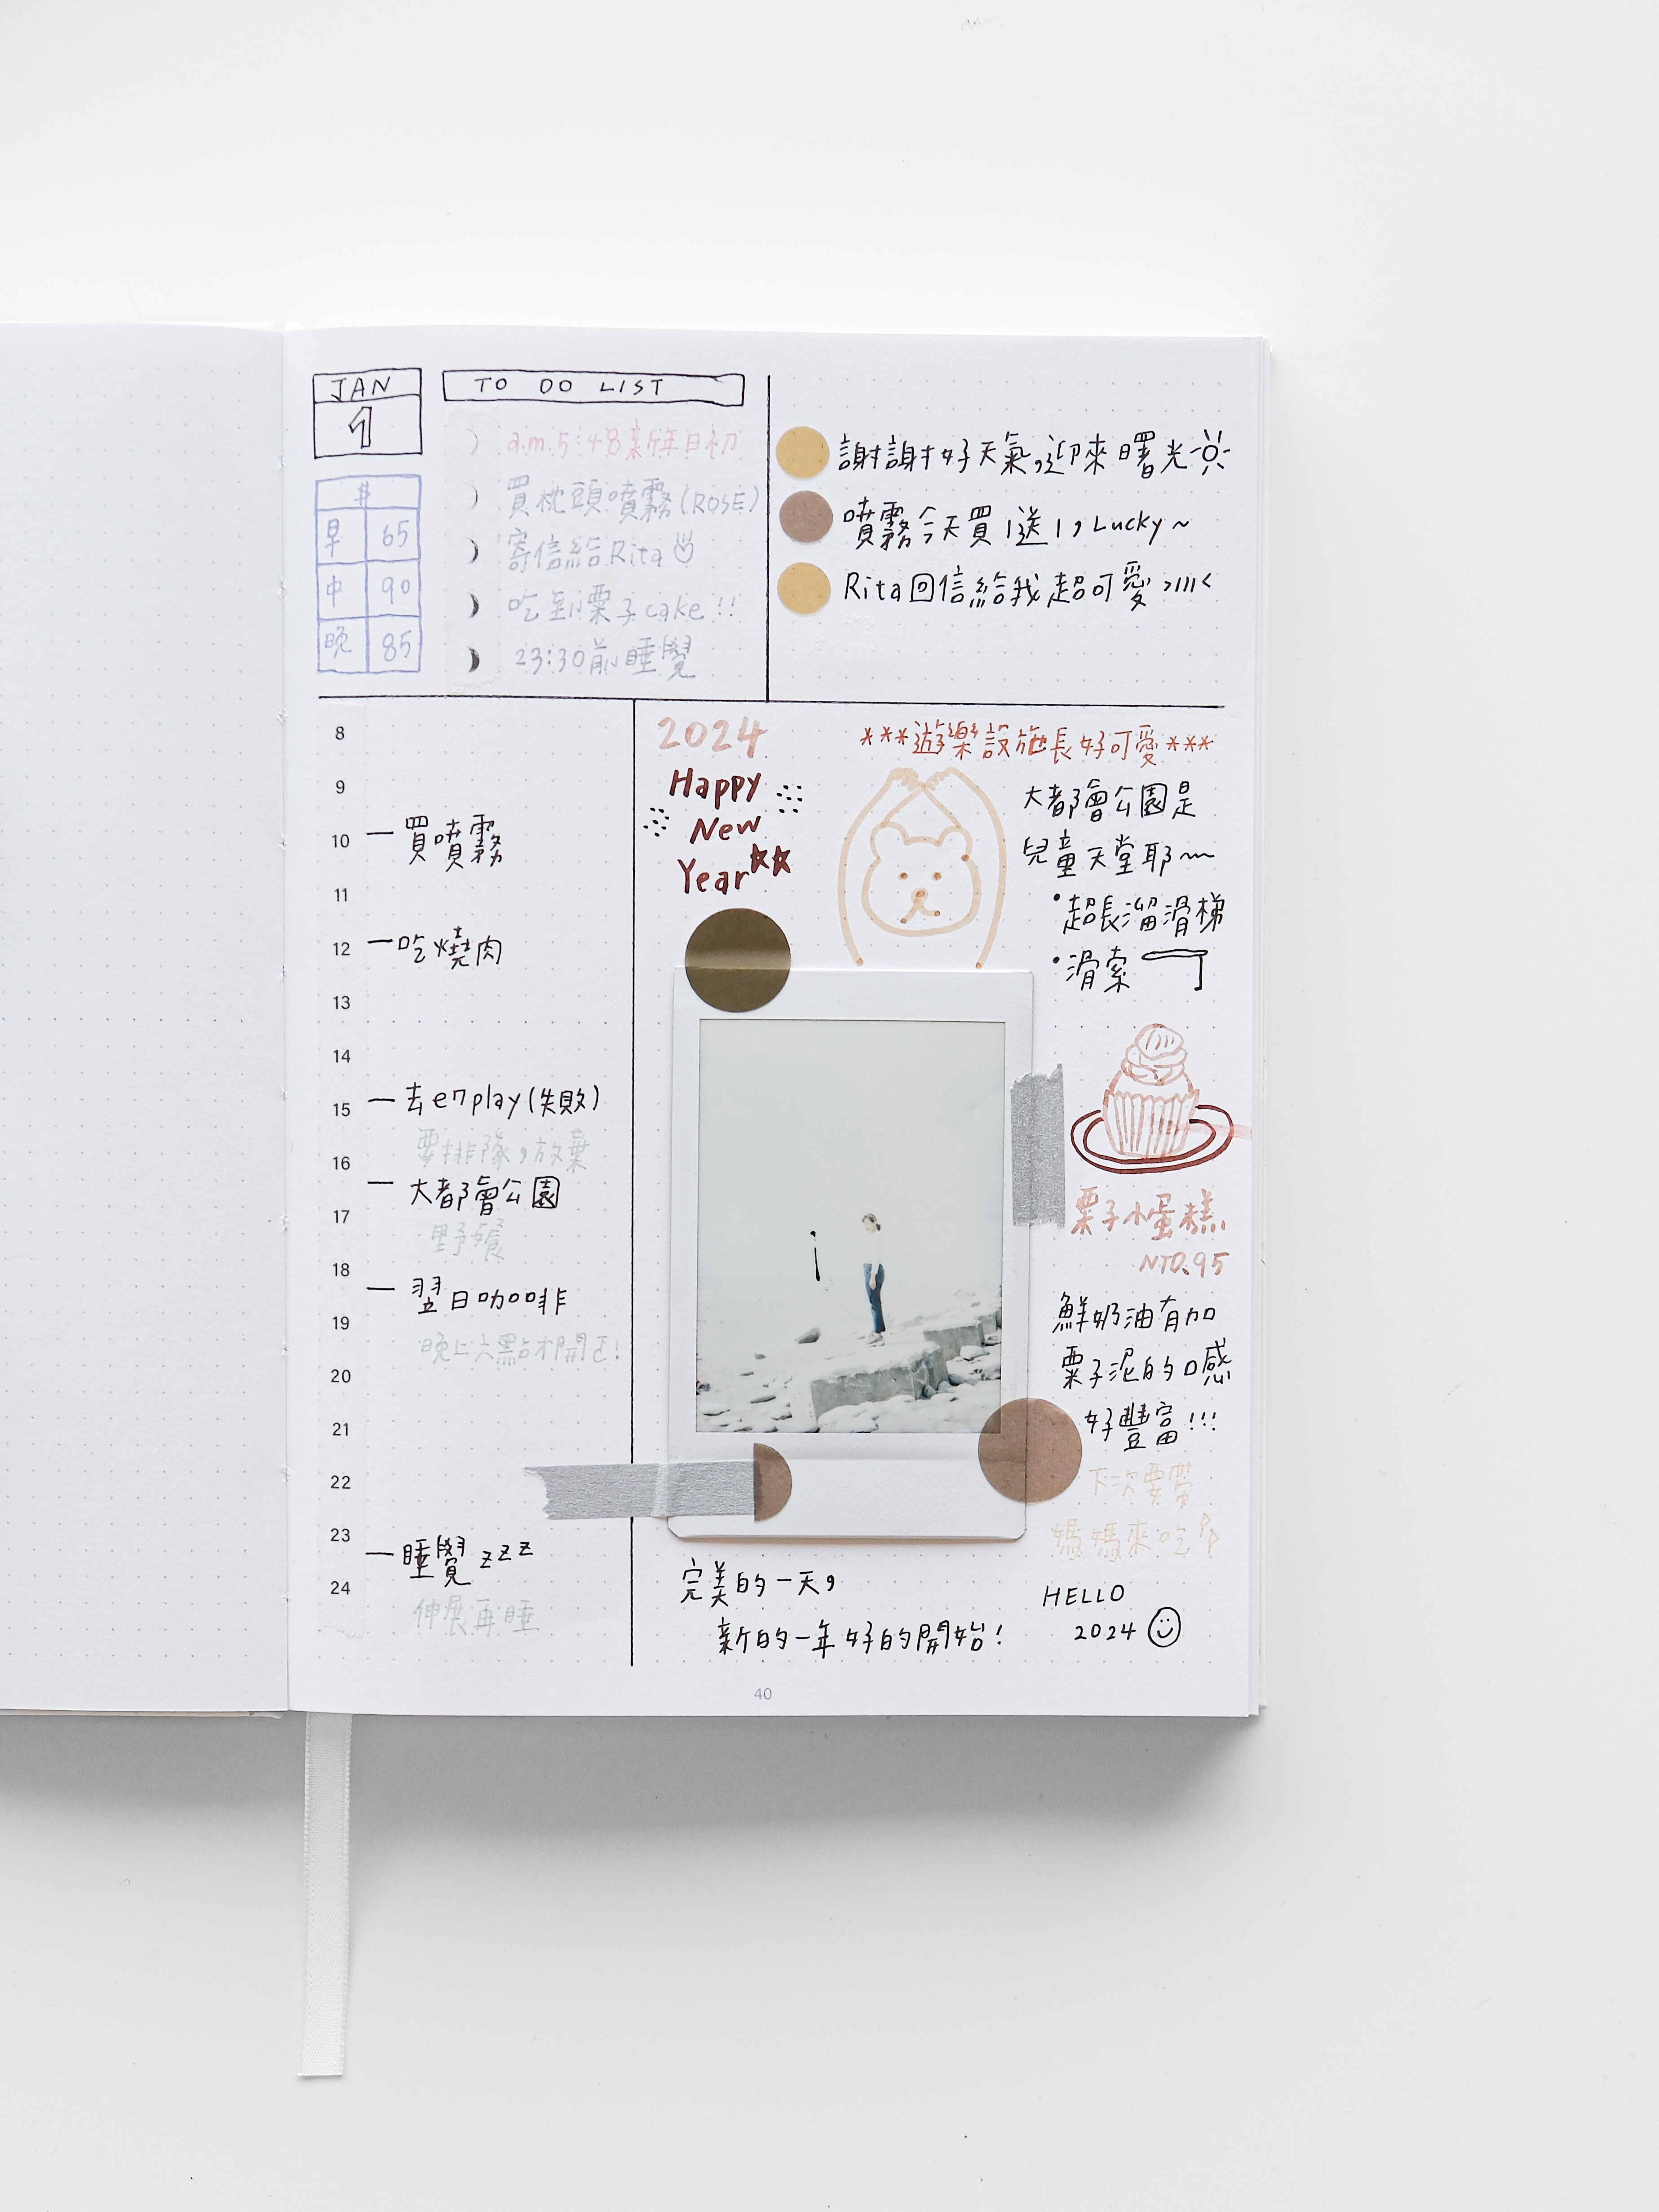 JAN
1
$
早 65
中 90
晚 85
TO DO LIST
a.m.5:48新年日初
買枕頭噴霧(ROSE)
寄信給Rita
吃到栗子cake!!
23:30前睡覺
謝謝好天氣,迎來曙光
噴霧今天買1送1,Lucky~
Rita回信給我超可愛>///<
8
9
10
買噴霧
11
12
吃燒肉
13
14
15
去en play(失敗)
要排隊,放棄
16
大都會公園
17
野餐
18
翌日咖啡
19
晚上六點才開店!
20
21
22
23
睡覺zzz
24
伸展再睡
2024
Happy
New
Year
***遊樂設施長好可愛***
大都會公園是
兒童天堂耶~
•超長溜滑梯
•滑索
栗子小蛋糕
NTD.95
鮮奶油有加
栗子泥的口感
好豐富!!!
下次要帶
媽媽來吃
完美的一天,
新的一年好的開始!
HELLO
2024
40